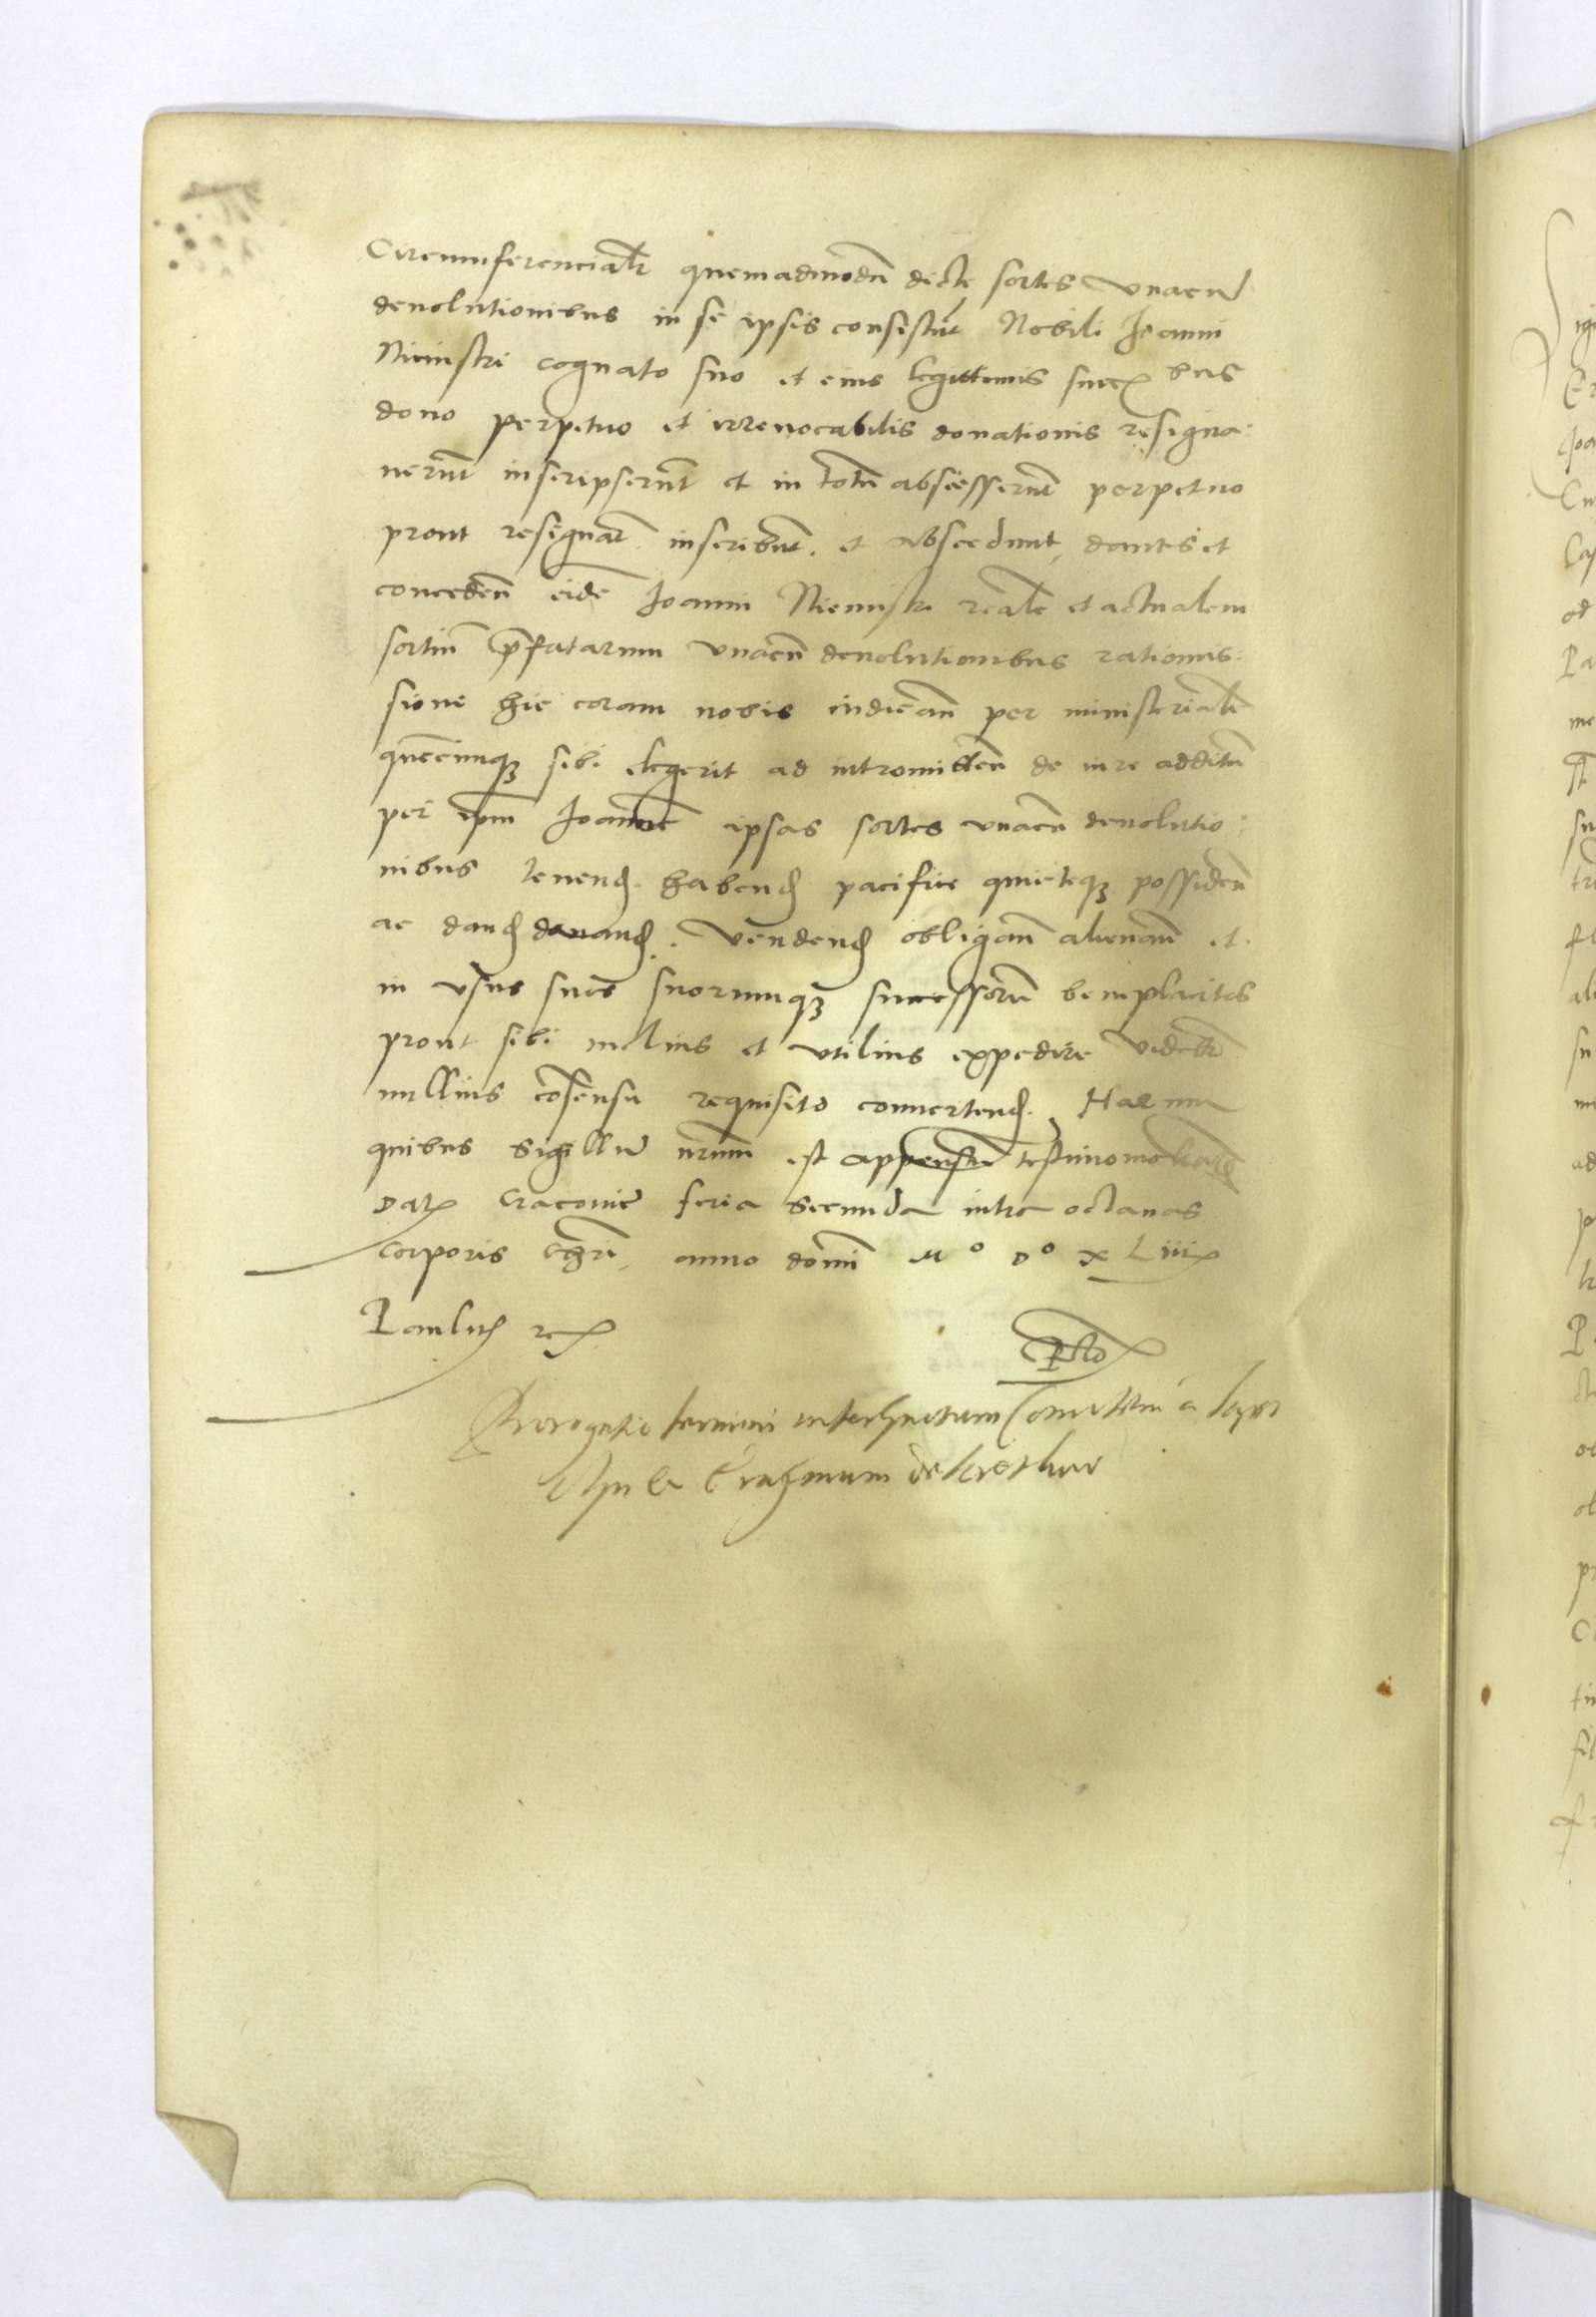 Circumferencialr quemadmodũ dicte sortes vnacũ
deuolutionibus in se ipsis consistũt Nobili Joanni
Niemstri cognato suo et eius legittimis succ bus
dono perpetuo et irreuocabilis donationis resigna:
uerũt inscripserũt et in totũ abscesserũt perpetuo
prout resignãt inscribũt. et abscedunt, dantes et
conceden̄ eidē Joanni Niemstri realē et actualem
sortiũ p̄fatarum vnacũ deuolutionibus rationis:
sione hic coram nobis iudican̄ per ministerialē
quēcũq3 sibi elegerit ad intromitten̄ de iure additũ
per ipm̄ Joannē ipsas sortes vnacũ deuolutio:
nibus tenend. habend pacifice quieteq3 possiden̄
ac dand donand. vendend obligan̄ alienan̄ et
in vsus suos suorumq3 successorũ beneplacitos
prout sibi melius et vtilius expedire videbr
nullius cōsensu requisito conuertend. Harum
quibus sigillũ nr̄um est appensũ testimonio
Dat Cracouie feria secunda intra octauas
corporis Chri, anno domī Mº Dº x Liii
Paulus
Prorogatio termini inter
Erasmum de